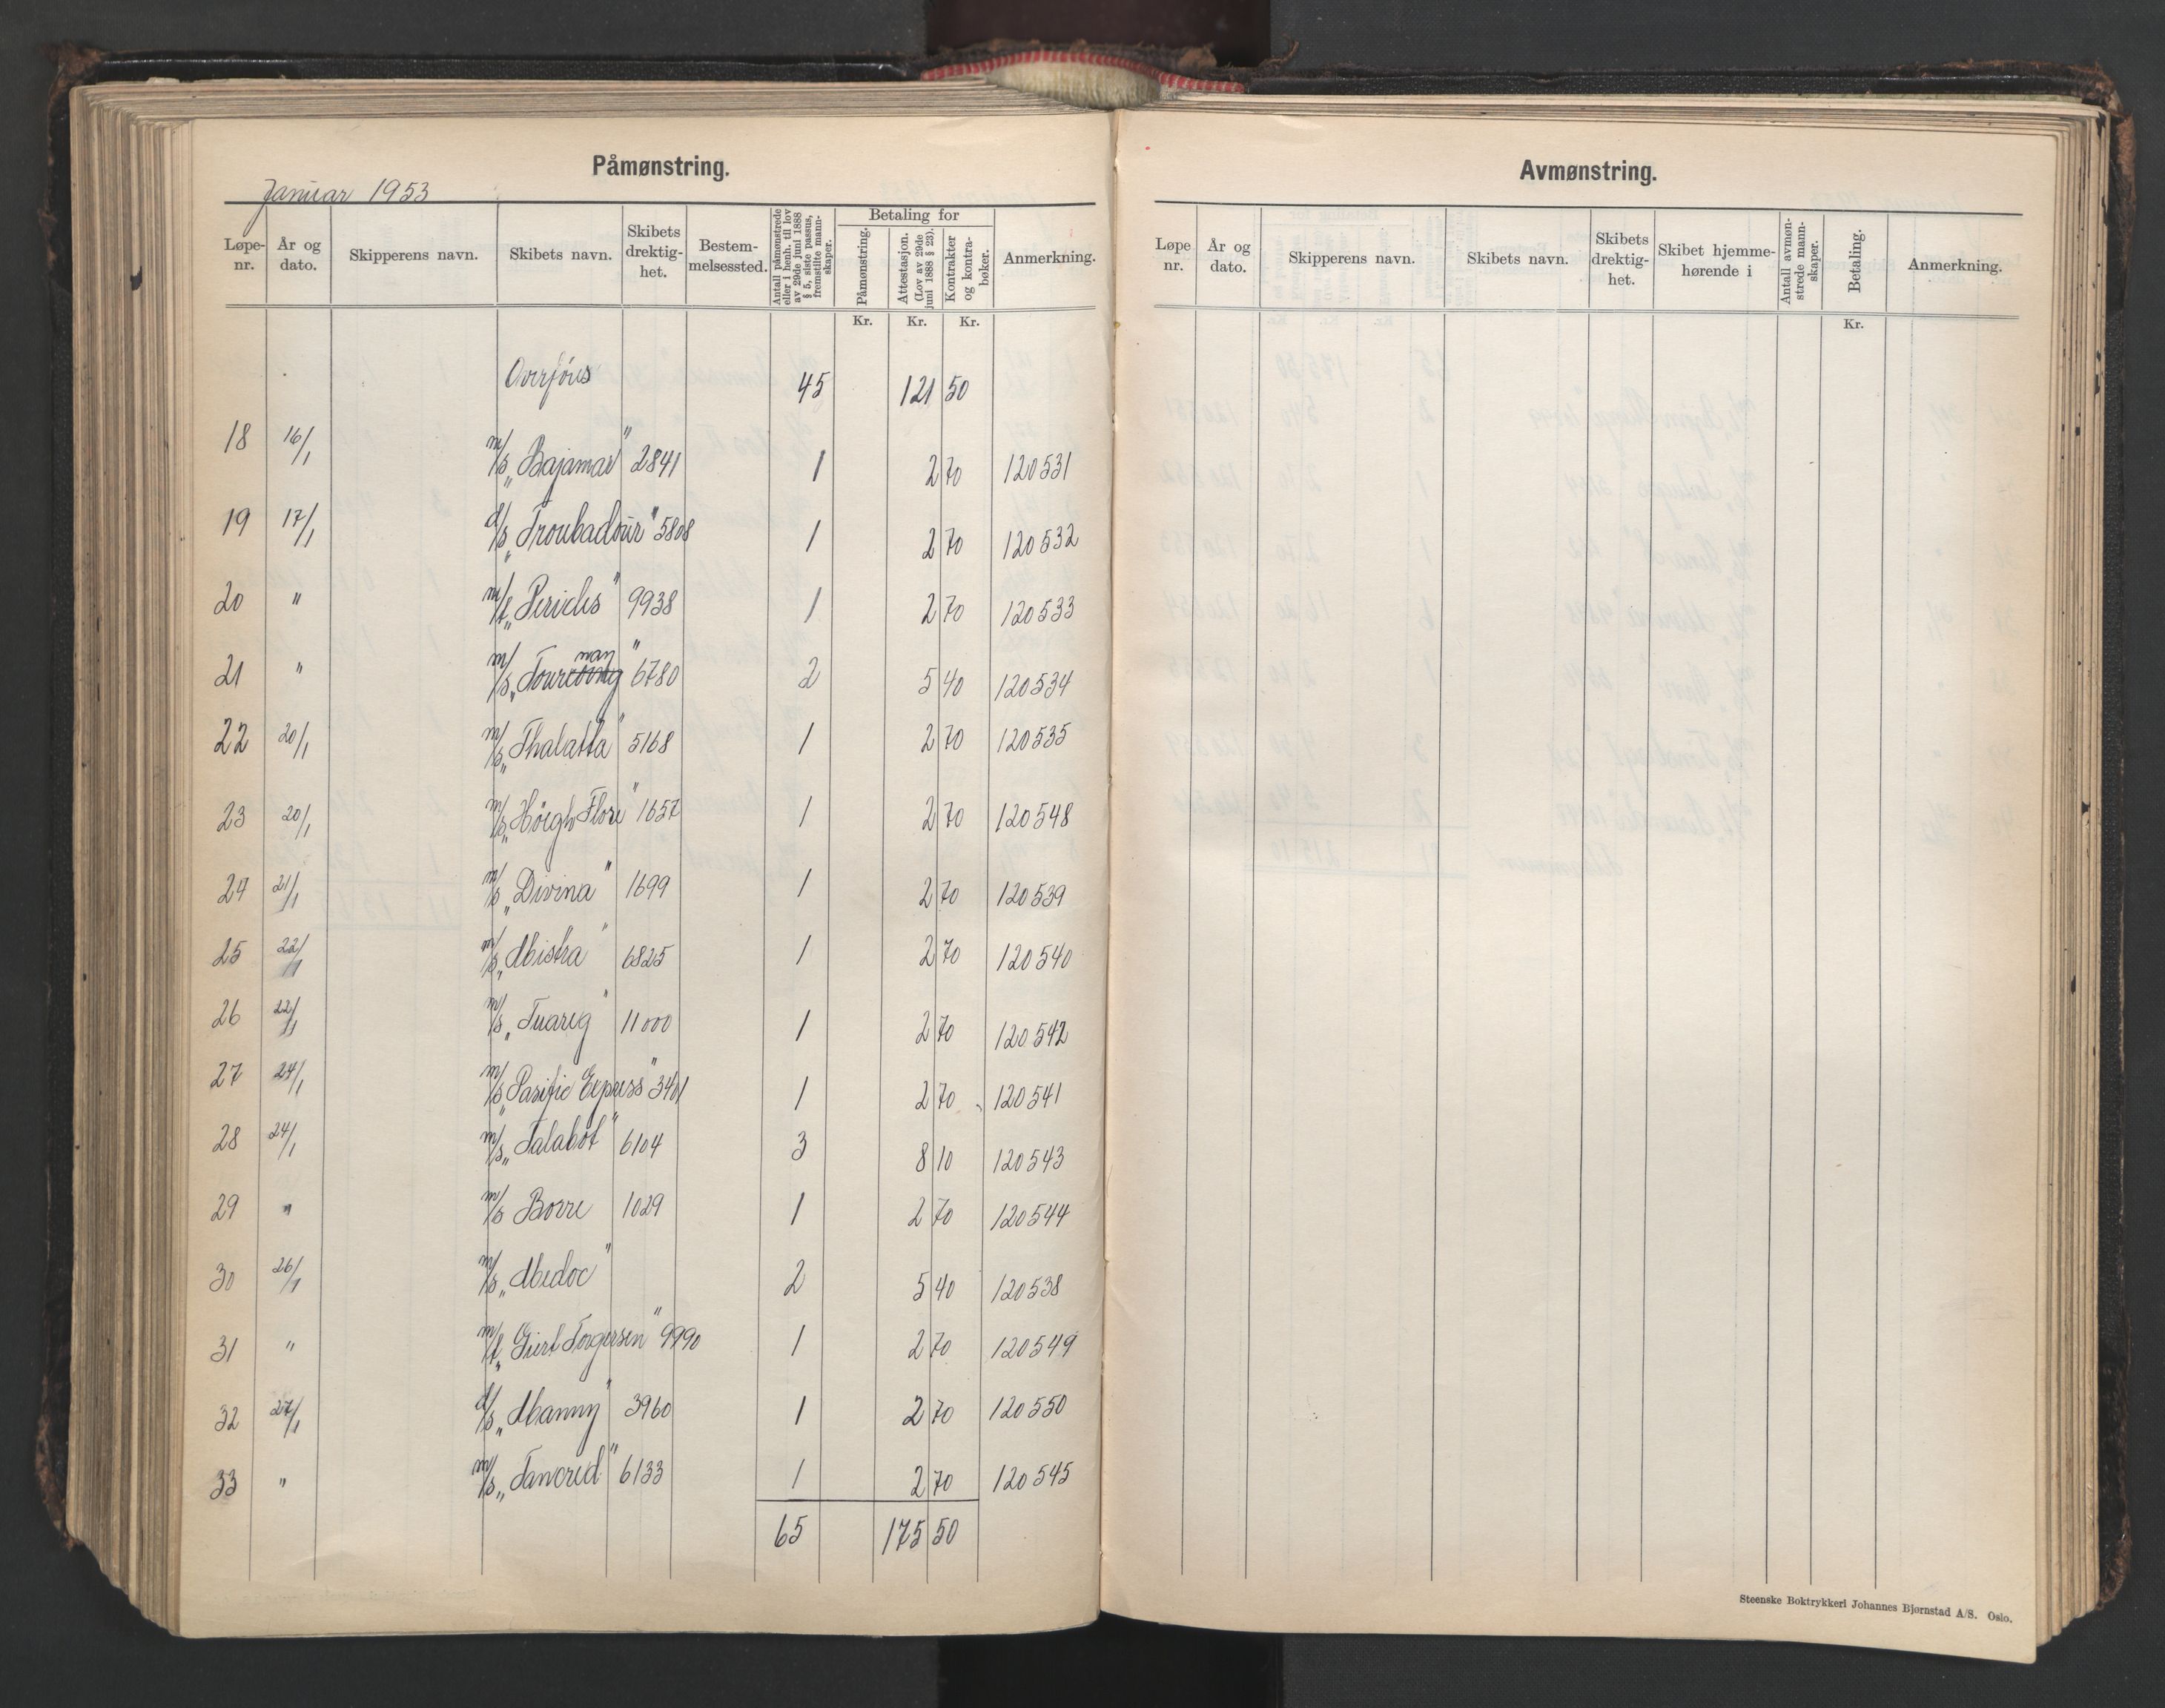 Påmønstring.
Januar 1953
Løpe-nr. År og dato. Skipperens navn. Skibets navn. Skibets drektig-het. Bestem-melsessted. Antall påmønstrede eller i henh. til lov av 29de juni 1888 § 5, siste passus, fremstilte mann-skaper. Betaling for Påmønstring. Attestasjon. (Lov av 29de juni 1888 § 23). Kontrakter og kontra-bøker. Anmerkning.
Kr. Kr. Kr.
Overføres 45 121 50
18 16/1 m/s „Bajamar" 2841 1 2 70 120531
19 17/1 d/s „Troubadour" 5808 1 2 70 120532
20 " m/t „Pericles" 9938 1 2 70 120533
21 " m/s „Tourcoing" man 6780 2 5 40 120534
22 20/1 m/s „Thalatta" 5168 1 2 70 120535
23 20/1 m/s „Höegh Flore" 1657 1 2 70 120548
24 21/1 m/s „Divina" 1699 1 2 70 120539
25 22/1 m/s „Mistra" 6825 1 2 70 120540
26 22/1 m/s „Tuareg" 11000 1 2 70 120542
27 24/1 m/s „Pasific Express" 3401 1 2 70 120541
28 24/1 m/s „Talabot" 6104 3 8 10 120543
29 " m/s Borre 1029 1 2 70 120544
30 26/1 m/s „Medoc" 2 5 40 120538
31 " m/t „Giert Torgersen" 9990 1 2 70 120549
32 27/1 d/s „Manny" 3960 1 2 70 120550
33 " m/s „Tancred" 6133 1 2 70 120545
65 175 50
Avmønstring.
Løpe nr. År og dato. Skipperens navn. Skibets navn. Skibets drektig-het. Skibet hjemme-hørende i Antall avmøn-strede mann-skaper. Betaling. Anmerkning.
Kr.
Steenske Boktrykkeri Johannes Bjørnstad A/S. Oslo.